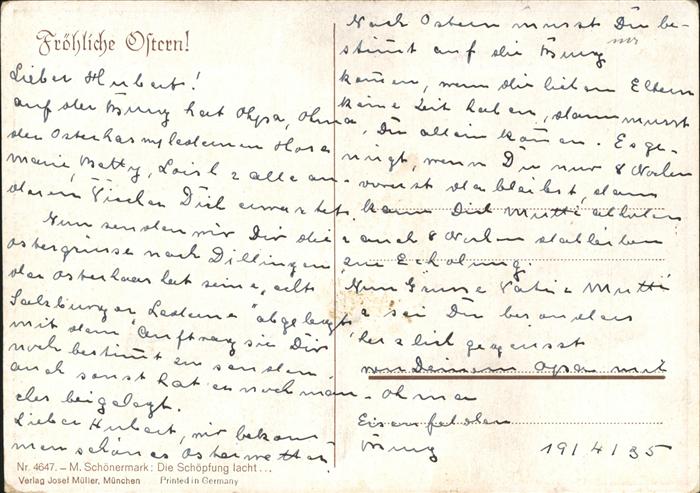 Fröhliche Ostern!
Lieber Hubert!
auf der Burg hat Opa, Oma,
der Osterhas mit Lederner Hose
marie, Betty, Loisl & alle an-
deren Viecher Dich erwartet.
Nun senden wir Dir die
Ostergrüsse nach Dillingen
der Osterhas hat seine, echt
Salzburger Lederne" abgelegt,
mit dem Auftrag sie Dir
noch bestimt zu senden.
auch sonst hat er noch man-
ches beigelegt.
Lieber Hubert, wir bekom
men schönes Osterwetter
Nach Ostern musst Du be-
stimt auf die Burg
nur
kom̄en, wenn die lieben Eltern
keine Zeit haben, dann musst
Du allein kom̄en. Es ge-
nügt, wenn Du nur 8 Wochen
vorerst da bleibst, dann
kann Dich Mutti abholen
& auch 8 Wochen dableiben
zur Erholung.
Nun Grüsse Vati & Mutti
& sei Du besonders
herzlich gegrüsst
von Deinem Opa mit
Oma
Eisenfelden
Burg 19/4/35
Nr. 4647. – M. Schönermark: Die Schöpfung lacht...
Verlag Josef Müller, München Printed in Germany